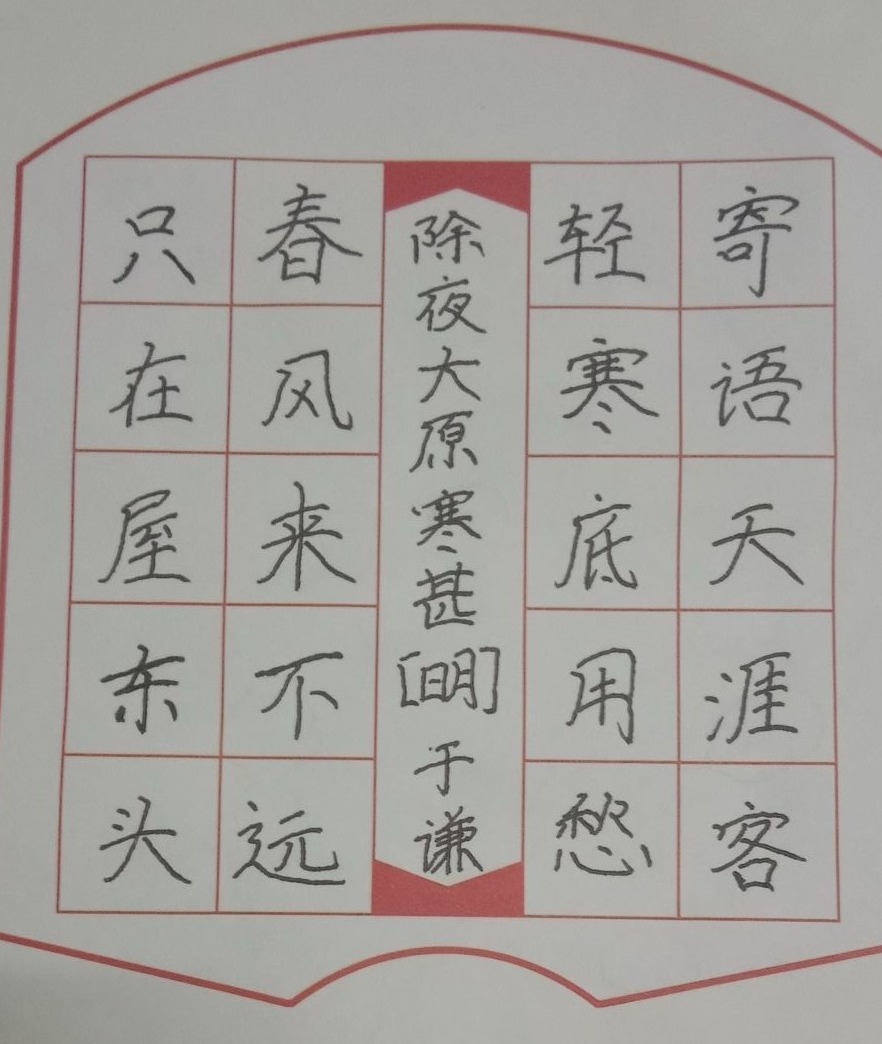 寄语天涯客
轻寒底用愁
除夜大原寒甚[明]于谦
春风来不远
只在屋东头